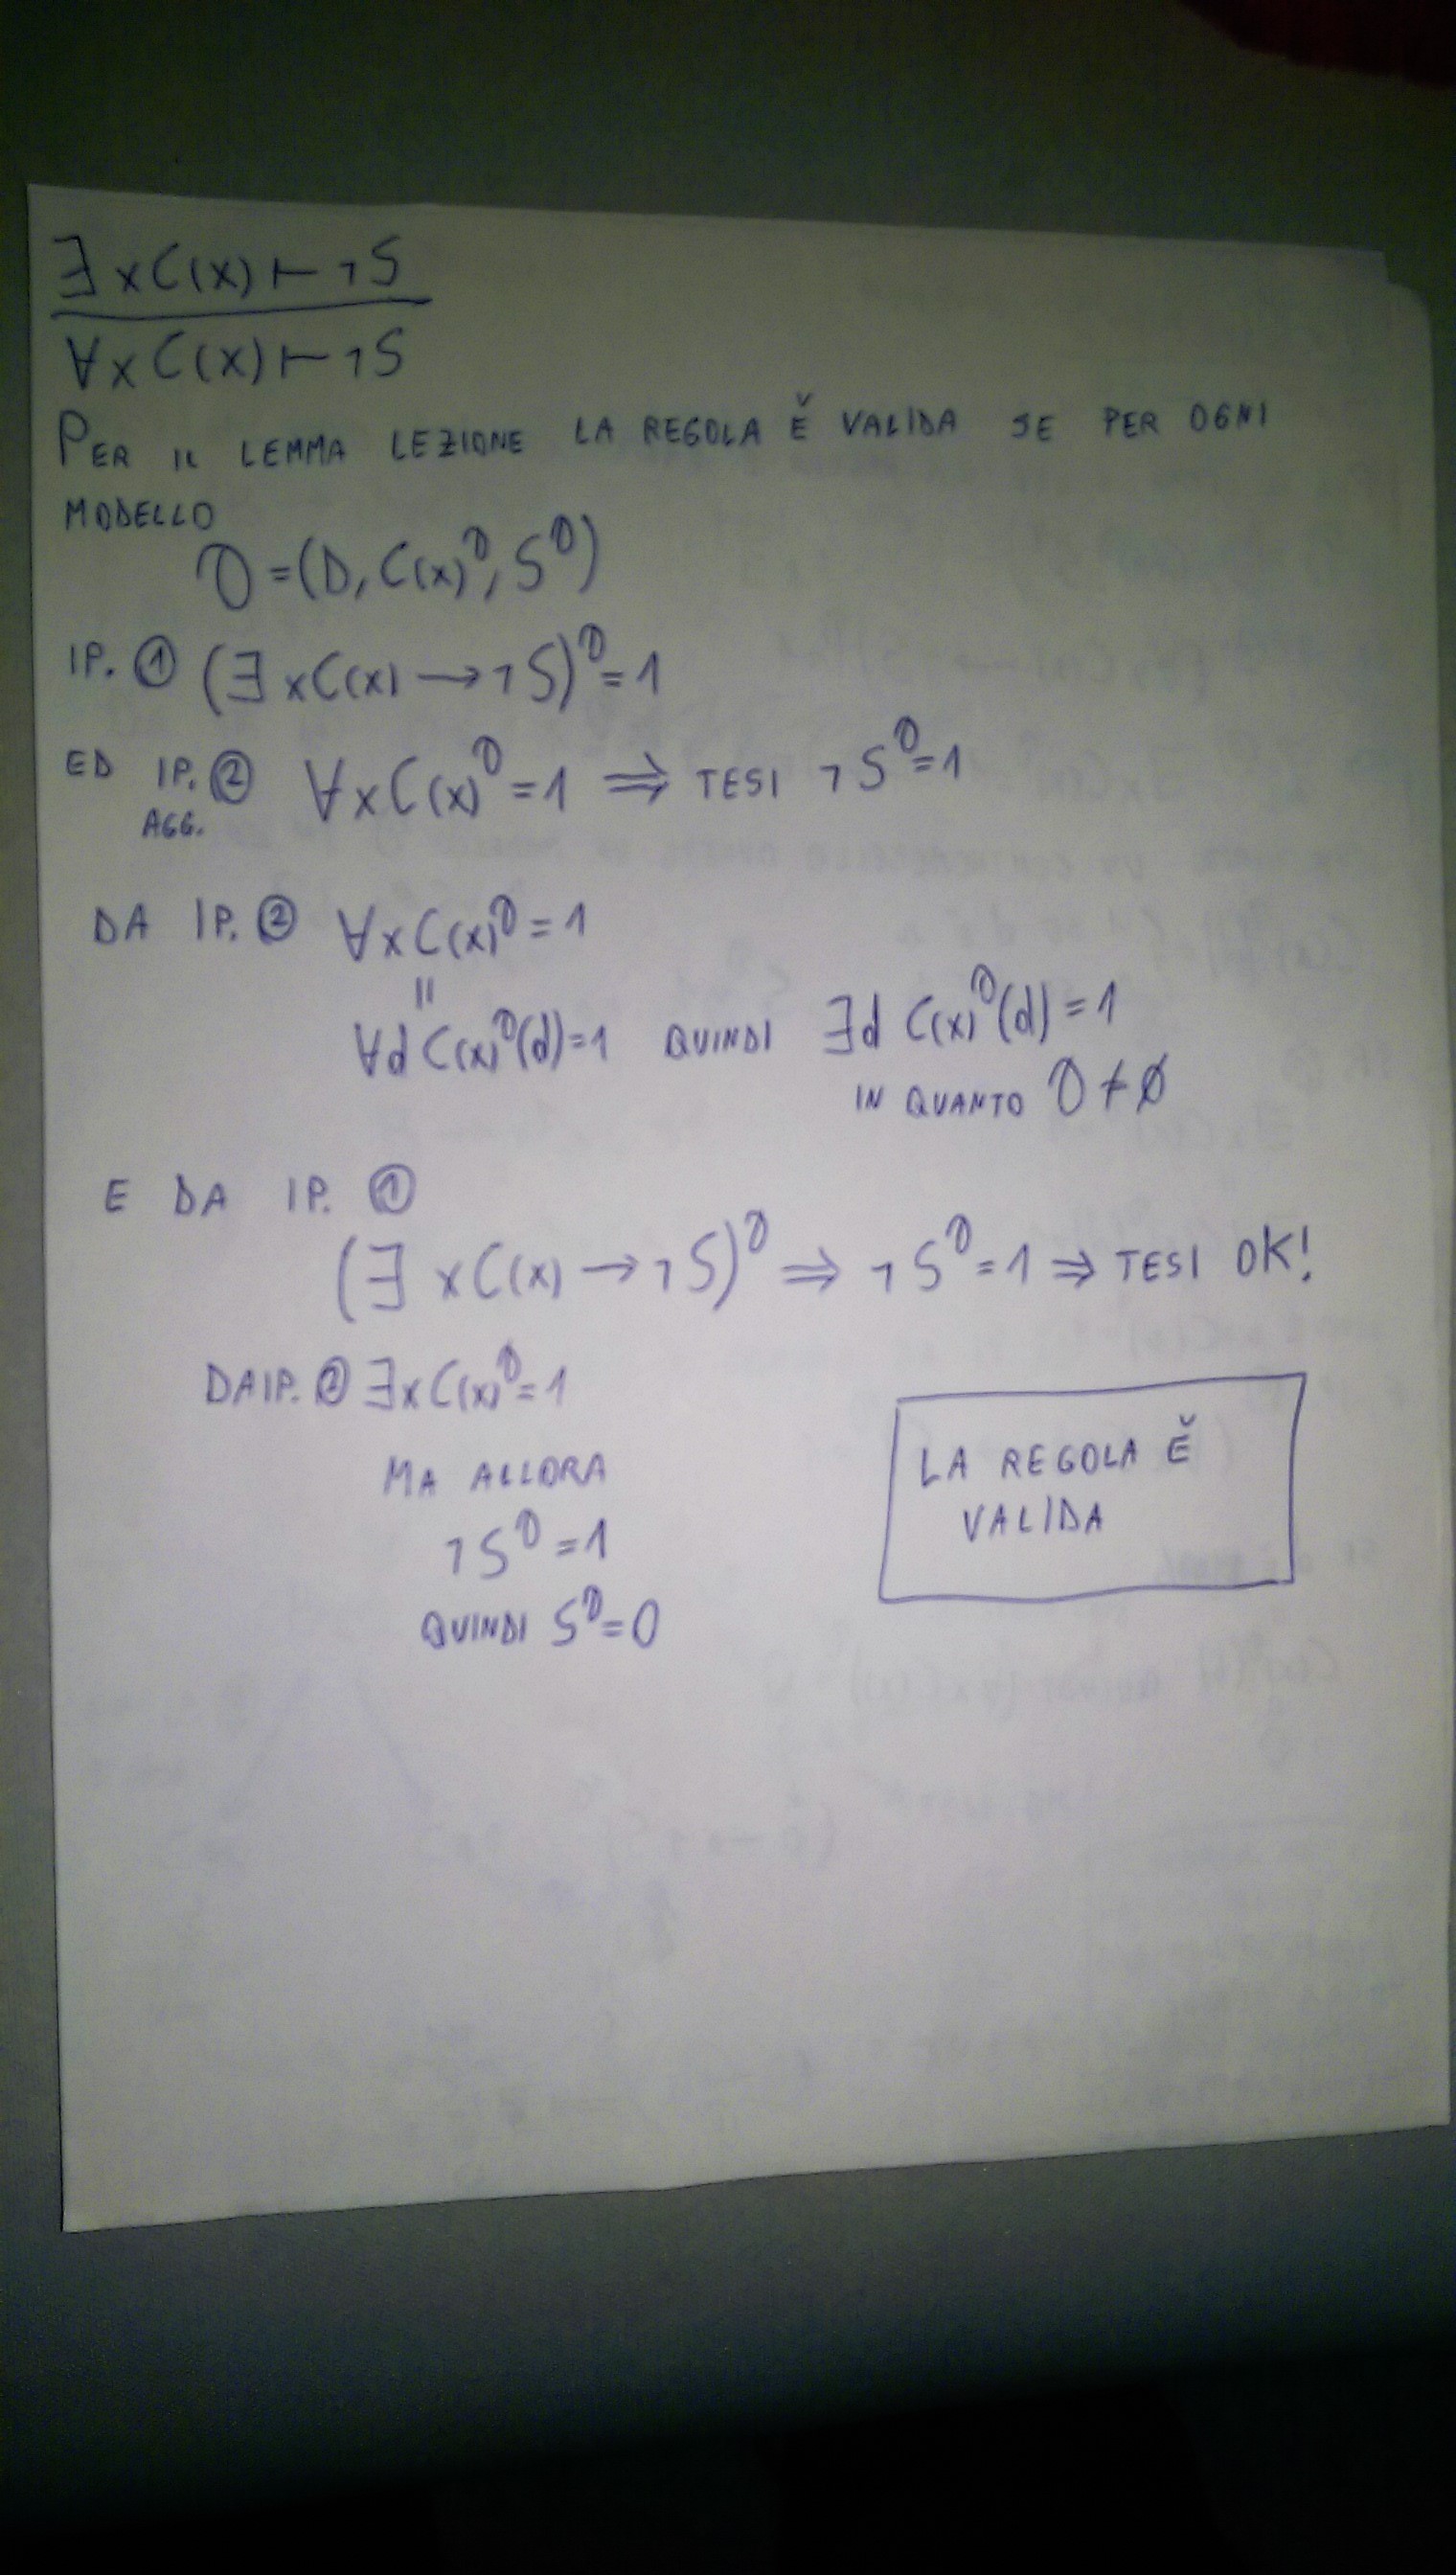 ∃xC(x) ⊢ ¬S
∀xC(x) ⊢ ¬S
PER IL LEMMA LEZIONE LA REGOLA È VALIDA SE PER OGNI
MODELLO
D = (D, C(x)^D, S^D)
IP. ① (∃xC(x) → ¬S)^D = 1
ED IP. ② ∀xC(x)^D = 1 ⇒ TESI ¬S^D = 1
AGG.
DA IP. ② ∀xC(x)^D = 1
=
∀d C(x)^D(d) = 1 QUINDI ∃d C(x)^D(d) = 1
IN QUANTO D ≠ ∅
E DA IP. ①
(∃xC(x) → ¬S)^D ⇒ ¬S^D = 1 ⇒ TESI OK!
DA IP. ② ∃xC(x)^D = 1
MA ALLORA
¬S^D = 1
QUINDI S^D = 0
LA REGOLA È
VALIDA